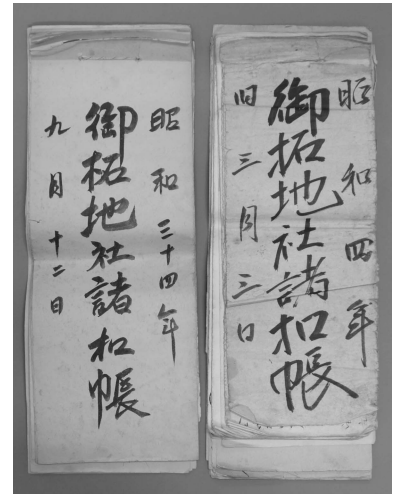 昭和四年
御拓地社諸扣帳
旧三月三日
昭和三十四年
御拓地社諸扣帳
九月十二日